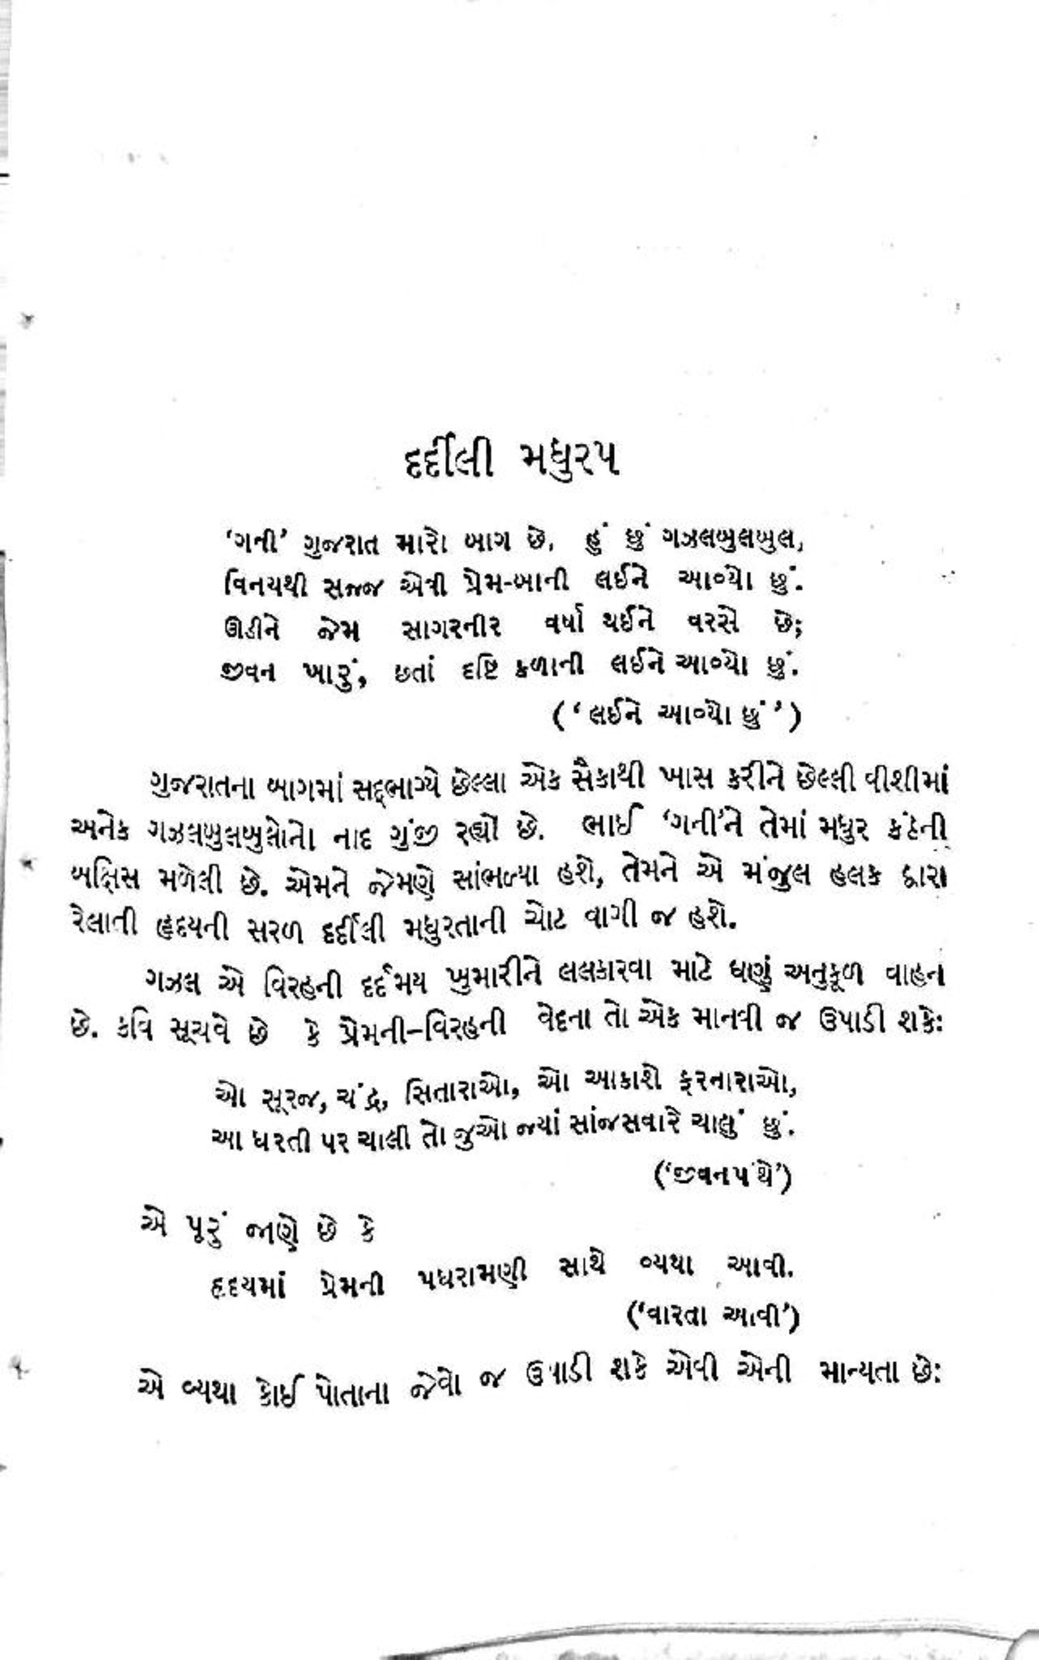 દર્દીલી મધુરપ
‘ગની’ ગુજરાત મારો બાગ છે, હું છું ગઝલબુલબુલ,
વિનયથી સજ્જ એવી પ્રેમ-બાની લઈને આવ્યો છું.
ઊડીને જેમ સાગરનીર વર્ષા થઈને વરસે છે;
જીવન ખારું, છતાં દૃષ્ટિ કળાની લઈને આવ્યો છું.
(‘લઈને આવ્યો છું’)
ગુજરાતના બાગમાં સદ્ભાગ્યે છેલ્લા એક સૈકાથી ખાસ કરીને છેલ્લી વીશીમાં
અનેક ગઝલબુલબુલોનો નાદ ગુંજી રહ્યો છે. ભાઈ ‘ગની’ને તેમાં મધુર કંઠની
બક્ષિસ મળેલી છે. એમને જેમણે સાંભળ્યા હશે, તેમને એ મંજુલ હલક દ્વારા
રેલાતી હૃદયની સરળ દર્દીલી મધુરતાની ચોટ વાગી જ હશે.
ગઝલ એ વિરહની દર્દમય ખુમારીને લલકારવા માટે ઘણું અનુકૂળ વાહન
છે. કવિ સૂચવે છે કે પ્રેમની–વિરહની વેદના તો એક માનવી જ ઉપાડી શકે:
ઓ સૂરજ, ચંદ્ર, સિતારાઓ, ઓ આકાશે ફરનારાઓ,
આ ધરતી પર ચાલી તો જુઓ જ્યાં સાંજસવારે ચાલું છું.
(‘જીવનપંથે’)
એ પૂરું જાણે છે કે
હૃદયમાં પ્રેમની પધરામણી સાથે વ્યથા આવી.
(‘વારતા આવી’)
એ વ્યથા કોઈ પોતાના જેવો જ ઉપાડી શકે એવી એની માન્યતા છે: